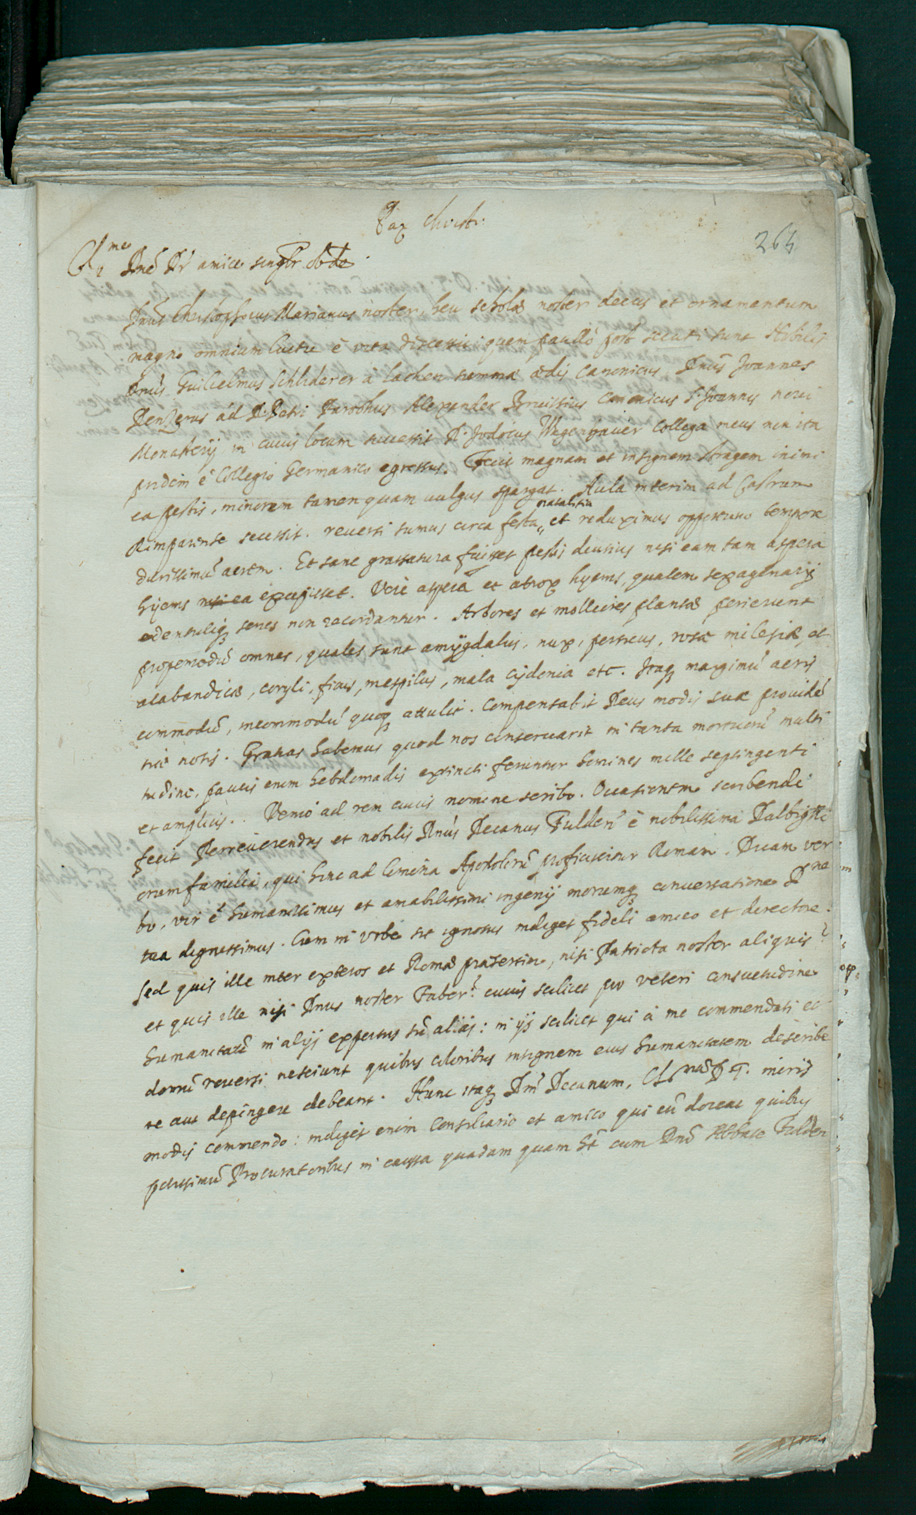 Pax Christi.
264
Cl.me Dne Dr amice singlr obde.
Janus Christophorus Marianus noster, heu scholae noster decus et ornamentum
magno omnium luctu è vita discessit: quem paullo post secuti sunt Nobilis
Dnus Guilielmus Schliderer à Lachen summae aedis Canonicus Dnus Joannes
ad D. Petri Parochus Alexander Canonicus S. Joannis novi
Monasterij in cuius locum successit D. Jodocus Wagenhauer Collega meus non ita
pridem è Collegio Germanico egressus. Fecit magnam et insignem stragem inimi
ca pestis, minorem tamen quam vulgus spargat. Aula interim ad Castrum
secessit. reversi sumus circa festa natalitia et reduximus opportuno tempore
durissimū aerem. Et sane grassatura fuisset pestis diutius nisi eam tam aspera
hyems excepisset. Verè aspera et atrox hyems, qualem sexagenarij
edentuliq senes non recordantur. Arbores et molliores plantae perierunt
propemodū omnes, quales sunt amÿgdalus, nux, persicus, rosae milesiae, et
alabandicae, coryli, ficus, mespilus, mala cydonia etc. Itaq maximū aeris
commodū, incommodū quoq attulit. Compensabit Deus modis suae provide
tiae notis. Gratias habemus quod nos conservarit in tanta mortuorū multi
tudine, paucis enim hebdomadis extincti feruntur homines mille septingenti
et amplius. Venio ad rem cuius nomine scribo. Occasionem scribendi
fecit Perreverendus et nobilis Dnus Decanus Fulden è nobilissima Dalbigiti
orum familia, qui hinc ad limina Apostolorū proficiscitur Romam. Dicam ver
bo, vir ē humanissimus et amabilissimi ingenij morumq conversatione Dne
tua dignissimus. Cum in Urbe sit ignotus indiget fideli amico et directore.
sed quis ille inter exteros et Romae praesertim, nisi Patriota noster aliquis?
et quis ille nisi Dnus noster Faber? cuius scilicet pro veteri consuetudine
humanitatē in alijs expertus sū aliàs: in ijs scilicet qui à me commendati et
domū reversi nesciunt quibus coloribus insignem eius humanitatem describe
re aut depingere debeant. Hunc itaq Dnū Decanum, miris
modis commendo: indiget enim Consiliario et amico qui eū doceat quibus
potissimū Procuratoribus in caussa quadam quam ht cum Dno Abbate Fulden